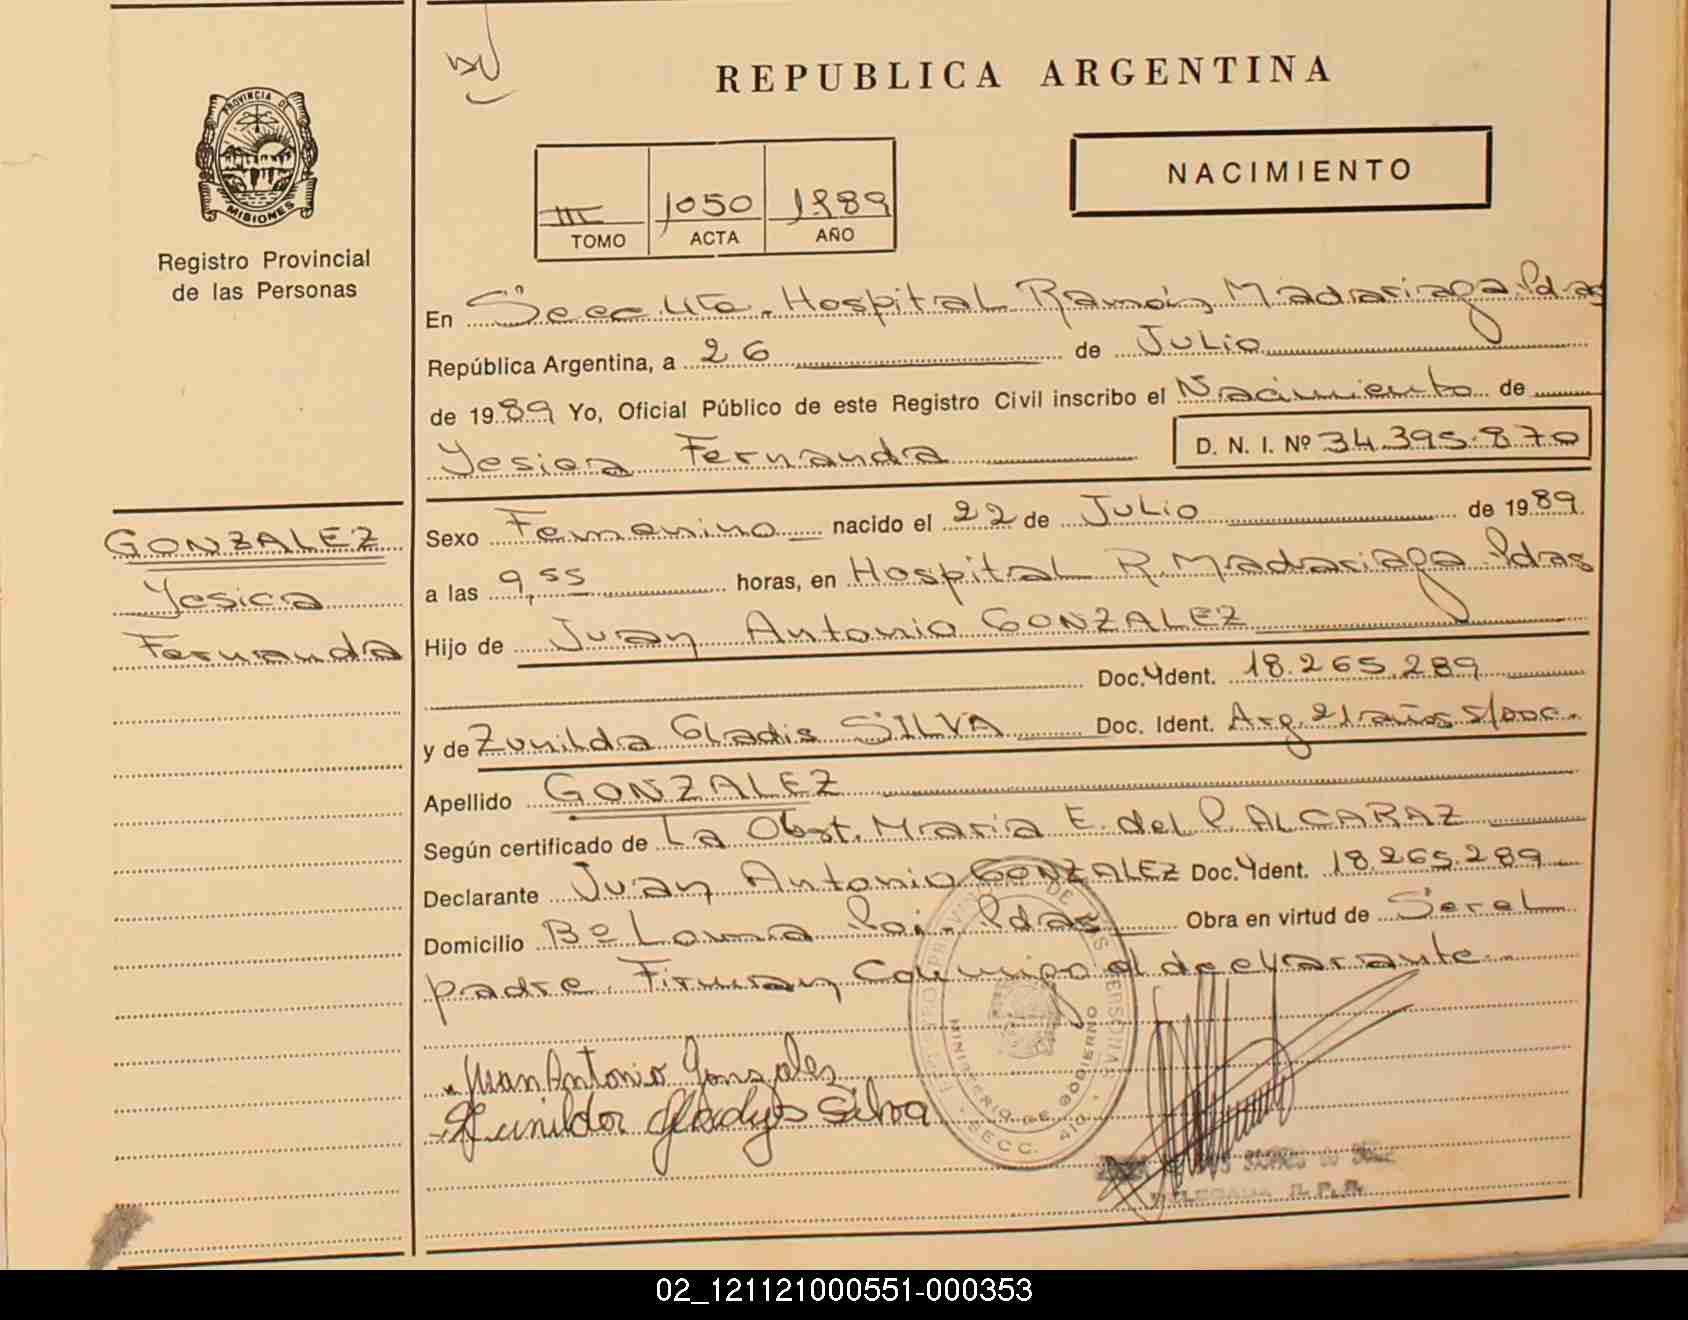 PROVINCIA DE
MISIONES
Registro Provincial
de las Personas
GONZALEZ
Yesica
Fernanda
REPUBLICA ARGENTINA
III 1050 1989
TOMO ACTA AÑO
NACIMIENTO
En Secc. Hospital Ramón Madariaga. Pdas
República Argentina, a 26 de Julio
de 1989 Yo, Oficial Público de este Registro Civil inscribo el Nacimiento de
Yesica Fernanda D. N. I. Nº 34.395.870
Sexo Femenino nacido el 22 de Julio de 1989
a las 9,55 horas, en Hospital R. Madariaga. Pdas
Hijo de Juan Antonio GONZALEZ
Doc. Ident. 18.265.289
y de Zunilda Gladis SILVA Doc. Ident. Arg. 21 años s/doc.
Apellido GONZALEZ
Según certificado de La Obst. María E. del P. ALCARAZ
Declarante Juan Antonio GONZALEZ Doc. Ident. 18.265.289
Domicilio Bº Loma Poi. Pdas Obra en virtud de Ser el
padre. Firman Conmigo el declarante.
Juan Antonio Gonzales
Zunilda Gladys Silva
REGISTRO PROVINCIAL DE LAS PERSONAS
MINISTERIO DE GOBIERNO
SECC. 410
DELEGADA R.P.P.
02_121121000551-000353